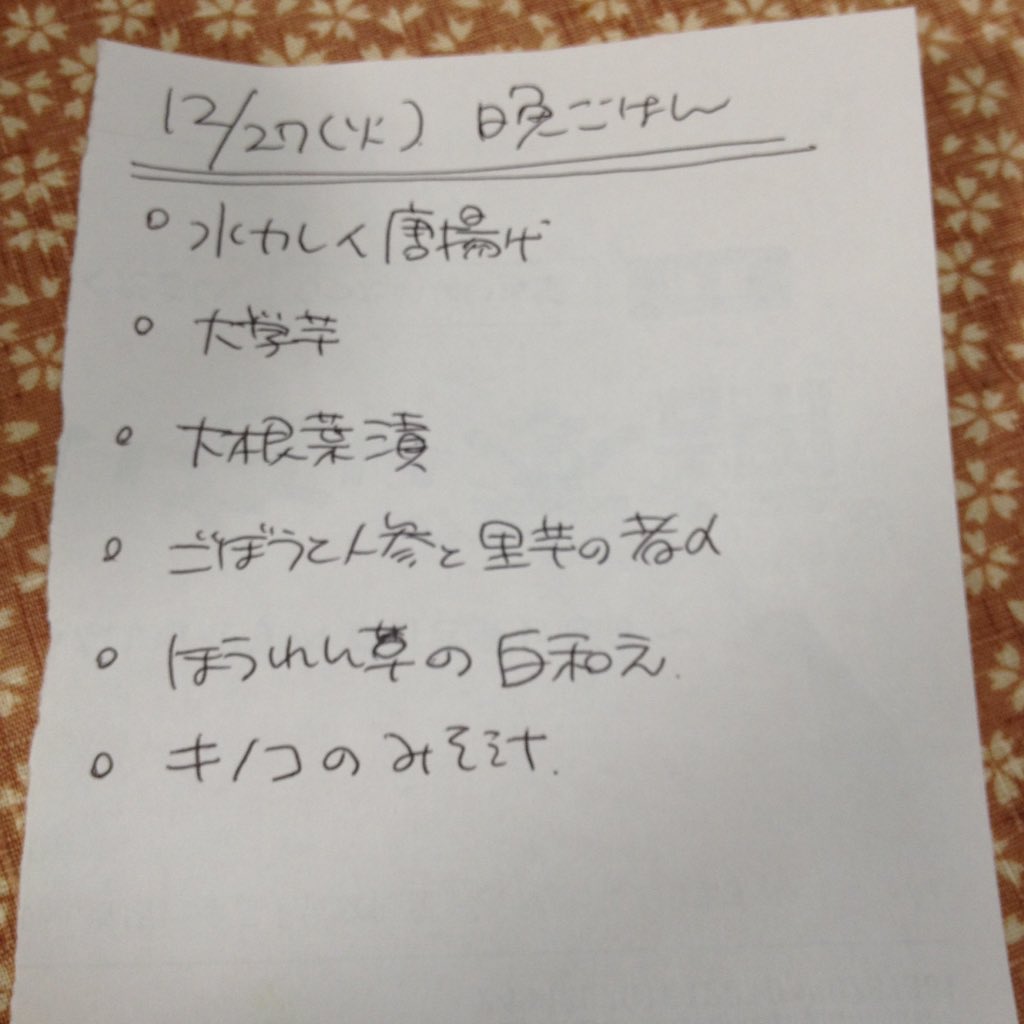 12/27(火) 晩ごはん
○ 水かしく唐揚げ
○ 大学芋
○ 大根葉漬
○ ごぼうと人参と里芋の煮〆
○ ほうれん草の白和え.
○ キノコのみそ汁.